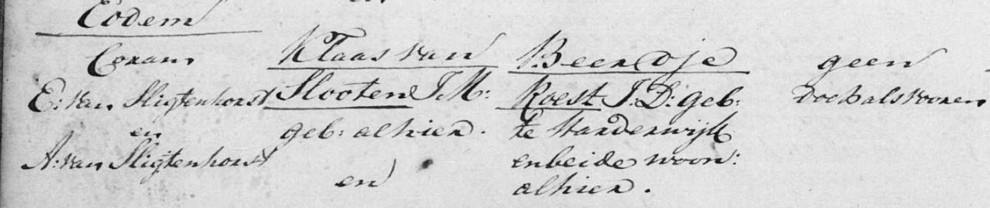 Eodem
Coram
E: van Sligtenhorst
en
A: van Sligtenhorst
Klaas van
Slooten J.M:
geb: alhier.
en
Beerdje
Roest J.D: geb:
te Harderwijk
en beide woon:
alhier.
geen
doch als vooren